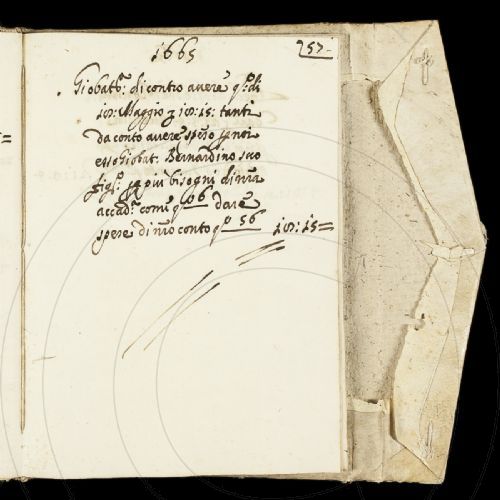 1665
257
Giobatt.ª di contro avere q.º di
Maggio 15: tanti
da conto avere speso p noi
esso Giobat: Bernardino suo
figl.º più bisogni di n̄ra
accad.ª come q.º 06 dare
spese di n̄ro conto q.º 56 15=